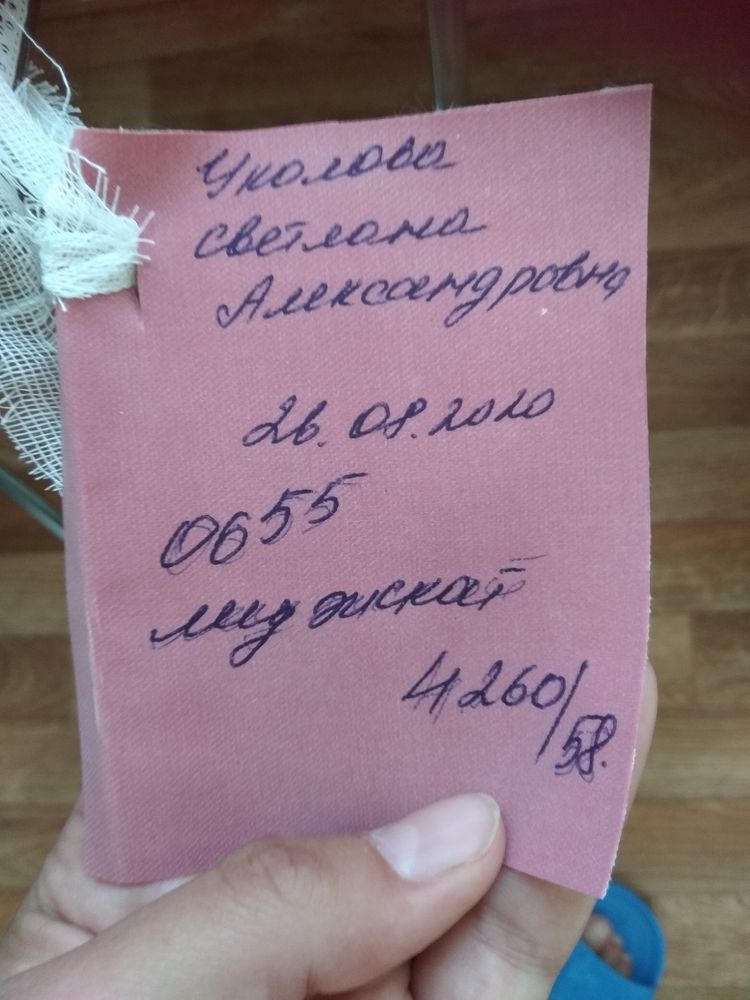 Уколова
Светлана
Александровна
26.08.2020
0655
мужской
4260/
58.